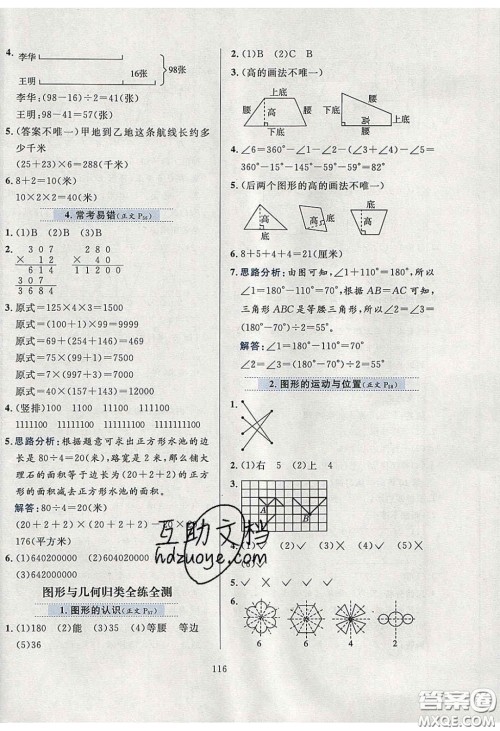 4.
李华
王明
16张
98张
李华:(98－16)÷2＝41(张)
王明:98－41＝57(张)
5. (答案不唯一)甲地到乙地这条航线长约多
少千米
(25＋23)×6＝288(千米)
6. 8＋2＝10(米)
10×2×2＝40(米)
4. 常考易错(正文P₅₆)
1. (1)B (2)B (3)B
2.
307
× 12
614
307
3684
280
× 11
280
280
3080
3. 原式＝125×4×3＝1500
原式＝(100＋1)×99＝9999
原式＝75×(99＋1)＝7500
原式＝7×(997＋3)＝7000
原式＝40×(157＋143)＝12000
4. (竖排)1100 11000 1100
1111100 1111100 1111100
5. 思路分析:根据题意可求出正方形水池的边
长是80÷4＝20(米),路宽是2米,那么铺大
理石的面积等于边长为(20＋2＋2)的正方
形的面积减去正方形水池的面积。
解答:80÷4＝20(米)
(20＋2＋2)×(20＋2＋2)－20×20＝
176(平方米)
6. (1)640200000 (2)640200000
(3)640200000
图形与几何归类全练全测
1. 图形的认识(正文P₅₇)
1. (1)180 (2)能 (3)35 (4)等腰 等边
(5)36
2. (1)B (2)C B
3. (高的画法不唯一)
上底
腰
高
腰
下底
腰
上底
高
下底
腰
4. ∠6＝360°－∠2－∠4－∠5＝
360°－15°－145°－60°＝140°
5. (后两个图形的高的画法不唯一)
高
底
底
高
高
底
6. 8＋5＋4＋4＝21(厘米)
7. 思路分析:由图可知,∠1＋110°＝180°,所以
∠1＝180°－110°＝70°。根据AB＝AC可知,
三角形ABC是等腰三角形,所以∠2＝
(180°－70°)÷2＝55°。
解答:∠1＝180°－110°＝70°
∠2＝(180°－70°)÷2＝55°
2. 图形的运动与位置(正文P₅₉)
1.
2. (1)右 5 (2)上 4
3.
A
B
4. (1)✓ (2)✓ (3)✓ (4)✓
5. (✓) (✓) ( ) (✓)
6.
6
4
4
6
116
互助文档
hdzuoye.com
答案圈
MXQE.COM